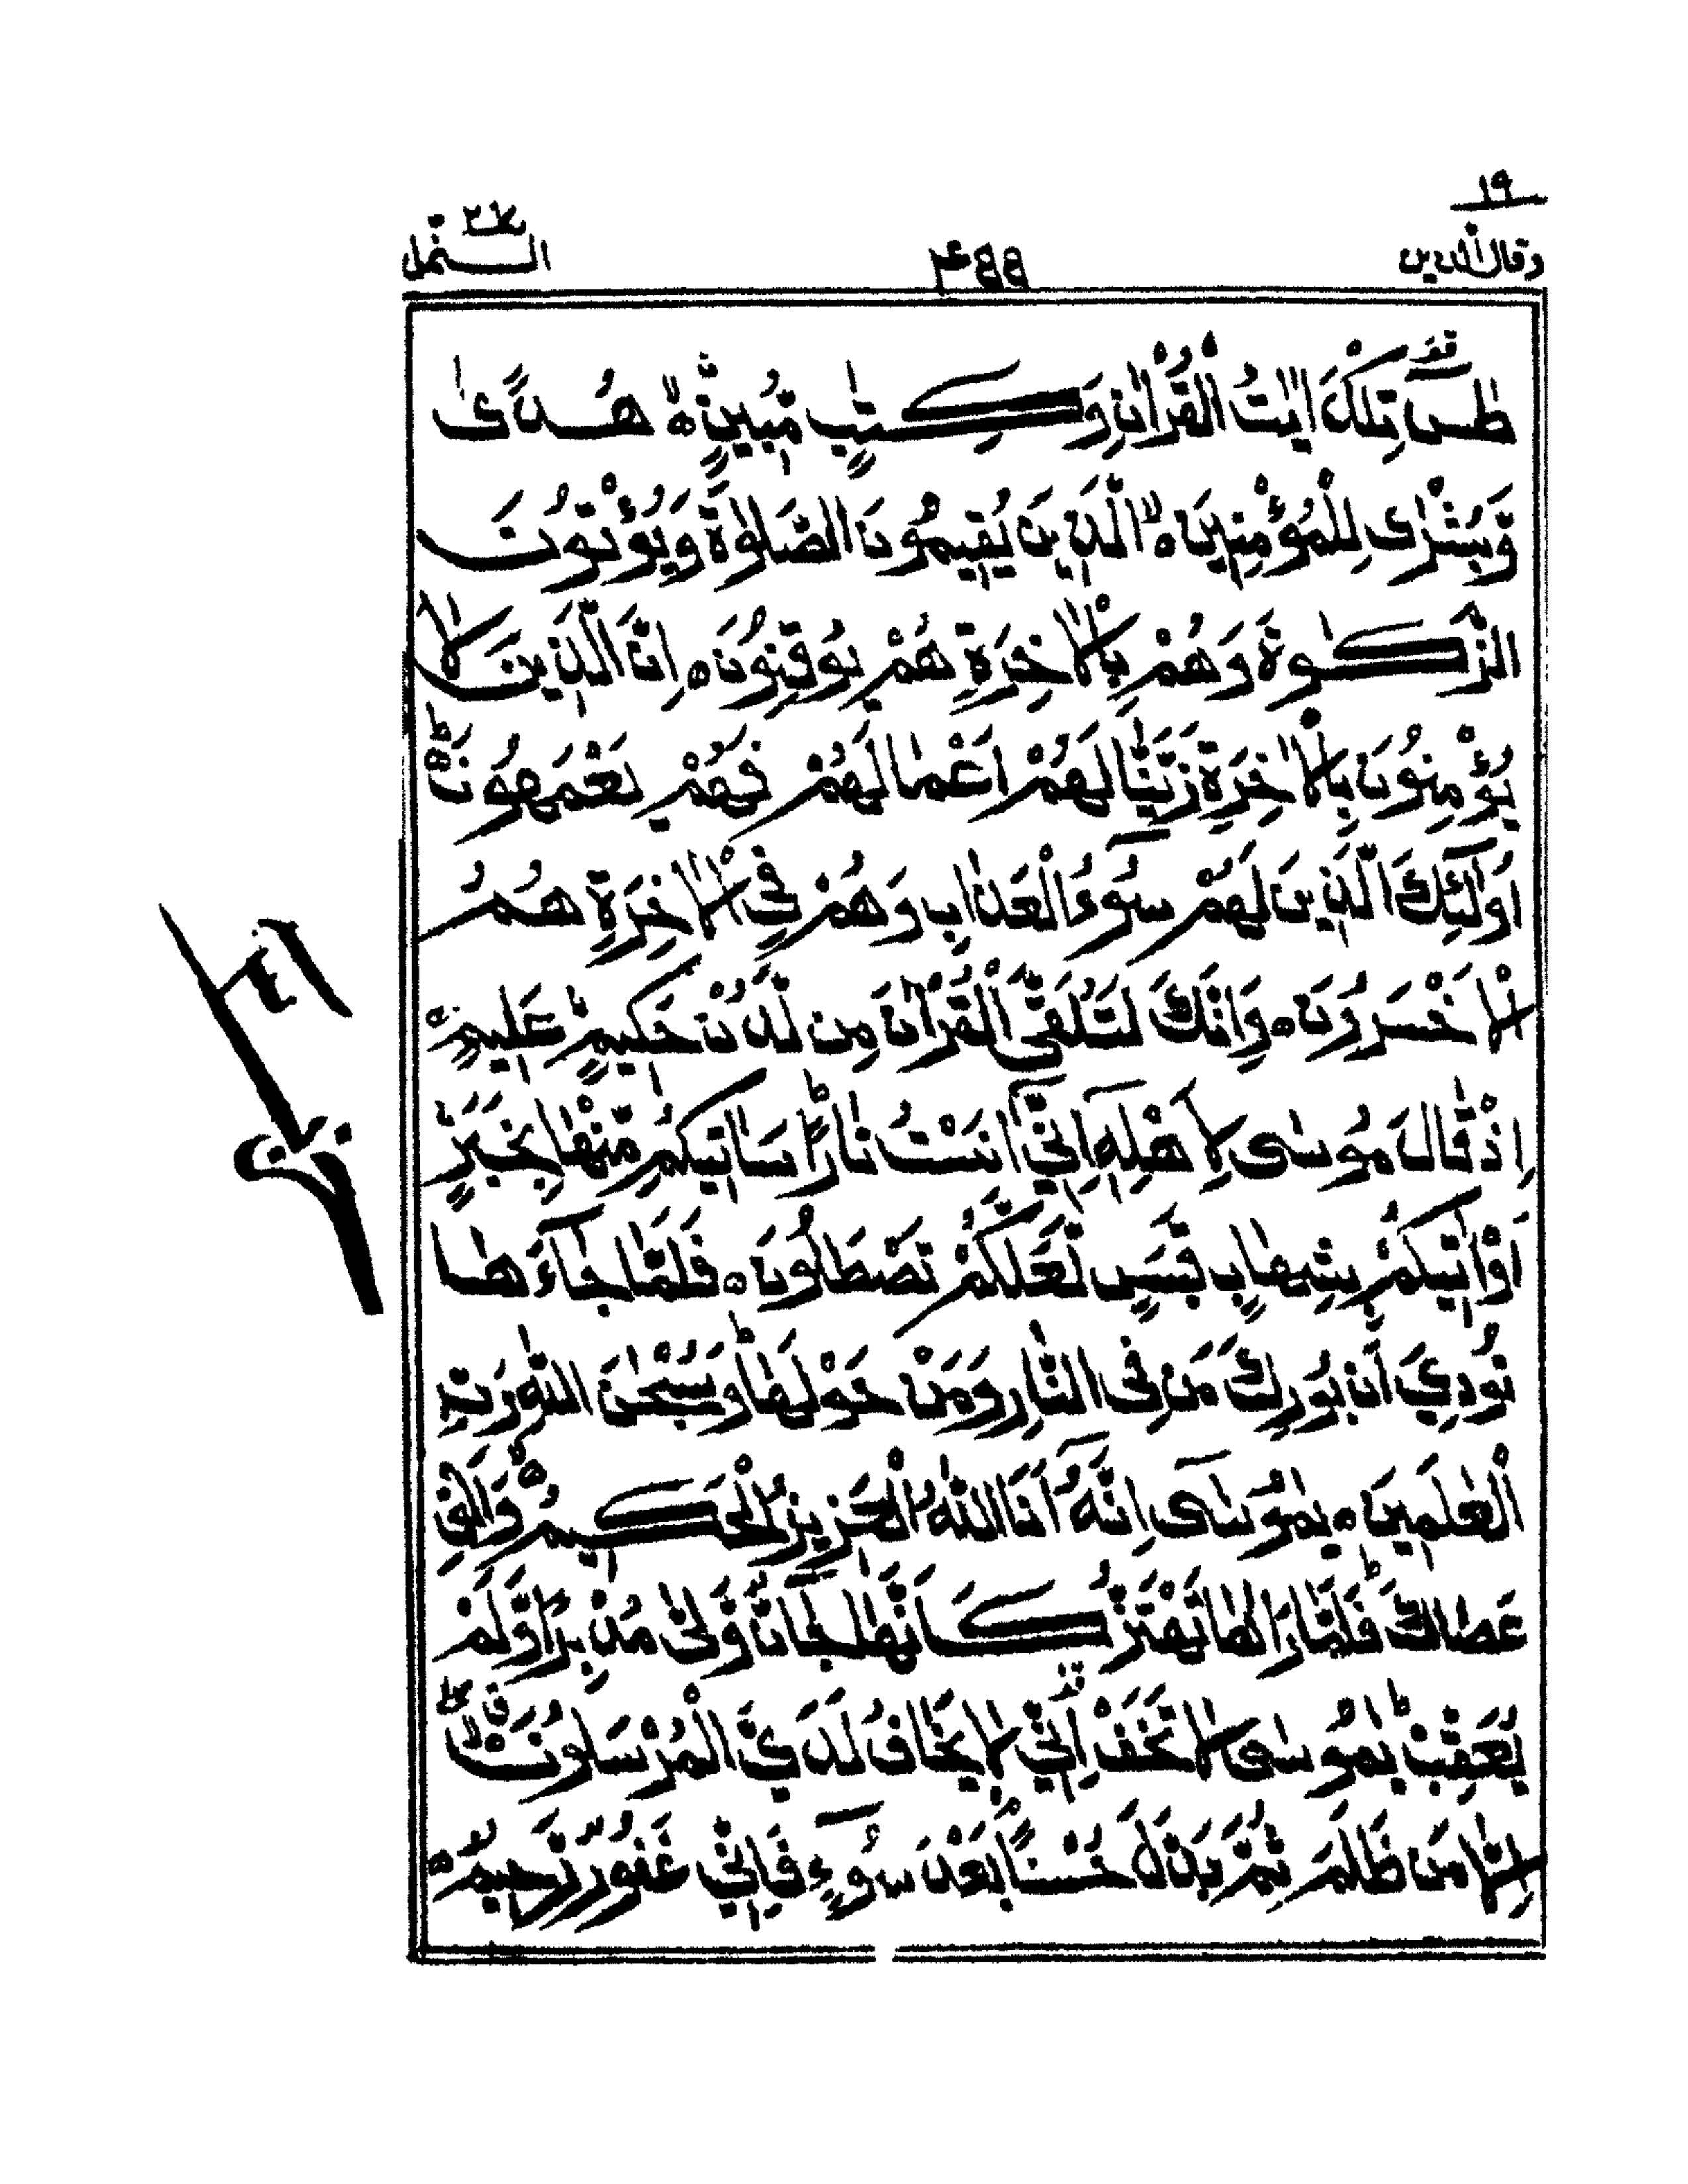 ١٩
وقال الذين
٤٥٥
النمل ٢٧
طٰسٓ قف تِلْكَ اٰيٰتُ الْقُرْاٰنِ وَكِتٰبٍ مُّبِيْنٍ ۙ هُدًى
وَّبُشْرٰى لِلْمُؤْمِنِيْنَ ۙ الَّذِيْنَ يُقِيْمُوْنَ الصَّلٰوةَ وَيُؤْتُوْنَ
الزَّكٰوةَ وَهُمْ بِالْاٰخِرَةِ هُمْ يُوْقِنُوْنَ ۝ اِنَّ الَّذِيْنَ لَا
يُؤْمِنُوْنَ بِالْاٰخِرَةِ زَيَّنَّا لَهُمْ اَعْمَالَهُمْ فَهُمْ يَعْمَهُوْنَ ؕ
اُولٰٓئِكَ الَّذِيْنَ لَهُمْ سُوْٓءُ الْعَذَابِ وَهُمْ فِي الْاٰخِرَةِ هُمُ
الْاَخْسَرُوْنَ ۝ وَاِنَّكَ لَتُلَقَّى الْقُرْاٰنَ مِنْ لَّدُنْ حَكِيْمٍ عَلِيْمٍ ۝
اِذْ قَالَ مُوْسٰى لِاَهْلِهٖٓ اِنِّيْٓ اٰنَسْتُ نَارًا ؕ سَاٰتِيْكُمْ مِّنْهَا بِخَبَرٍ
اَوْ اٰتِيْكُمْ بِشِهَابٍ قَبَسٍ لَّعَلَّكُمْ تَصْطَلُوْنَ ۝ فَلَمَّا جَآءَهَا
نُوْدِيَ اَنْۢ بُوْرِكَ مَنْ فِى النَّارِ وَمَنْ حَوْلَهَا ؕ وَسُبْحٰنَ اللّٰهِ رَبِّ
الْعٰلَمِيْنَ ۝ يٰمُوْسٰٓى اِنَّهٗٓ اَنَا اللّٰهُ الْعَزِيْزُ الْحَكِيْمُ ۙ وَاَلْقِ
عَصَاكَ ؕ فَلَمَّا رَاٰهَا تَهْتَزُّ كَاَنَّهَا جَآنٌّ وَّلّٰى مُدْبِرًا وَّلَمْ
يُعَقِّبْ ؕ يٰمُوْسٰى لَا تَخَفْ قف اِنِّيْ لَا يَخَافُ لَدَيَّ الْمُرْسَلُوْنَ ۖ
اِلَّا مَنْ ظَلَمَ ثُمَّ بَدَّلَ حُسْنًۢا بَعْدَ سُوْٓءٍ فَاِنِّيْ غَفُوْرٌ رَّحِيْمٌ ۝